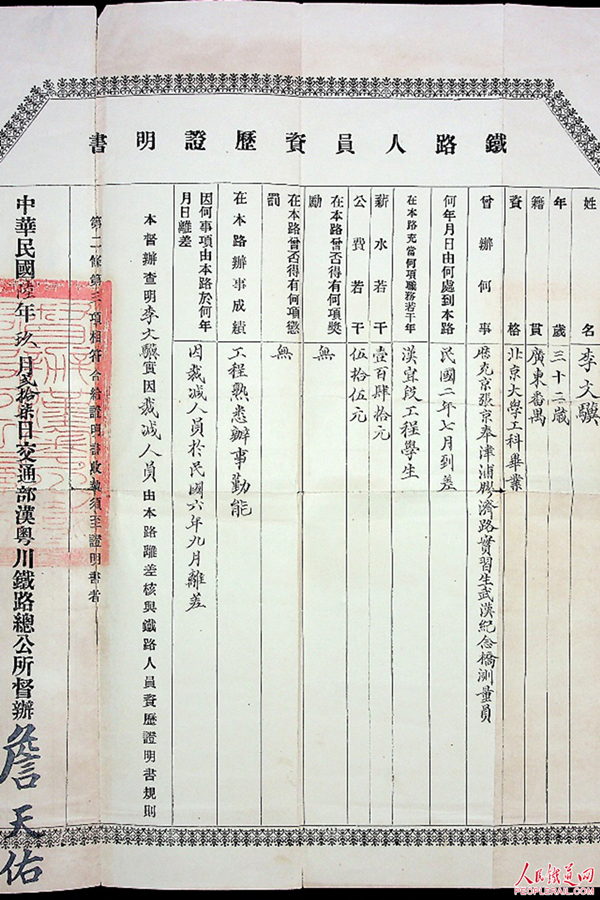 鐵路人員資歷證明書
姓名 李文驥
年歲 三十二歲
籍貫 廣東番禺
資格 北京大學工科畢業
曾辦何事 歷充京張京奉津浦膠濟路實習生武漢紀念橋測量員
何年月日由何處到本路 民國二年七月到差
在本路充當何項職務若干年 漢宜段工程學生
薪水若干 壹百肆拾元
公費若干 伍拾伍元
在本路曾否得有何項獎勵 無
在本路曾否得有何項懲罰 無
在本路辦事成績 工程熟悉辦事勤能
因何事項由本路於何年月日離差 因裁減人員於民國六年九月離差
本督辦查明李文驥實因裁減人員由本路離差核與鐵路人員資歷證明書規則
第二條第三項相符合給證明書收執須至證明書者
中華民國陸年玖月貳拾柒日交通部漢粵川鐵路總公所督辦
詹天佑
人民鐵道网
PEOPLERAIL.COM